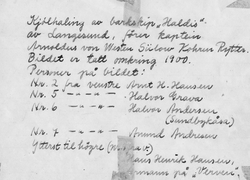 Kjölhaling av barkskip "Haldis"
av Langesund, förer kaptein
Arnoldus von Westen Sylow Kohrus Rytter.
Bildet er tatt omkring 1900.
Personer på bildet:
Nr. 2 fra venstre Arnt H. Hansen
Nr. 5 — — — Halvor Grava
Nr. 6 — — — Halvor Andersen
(Sundbykåsa)
Nr. 7 — — — Amund Andresen
Ytterst til högre
Hans Henrik Hansen,
på "Verven".